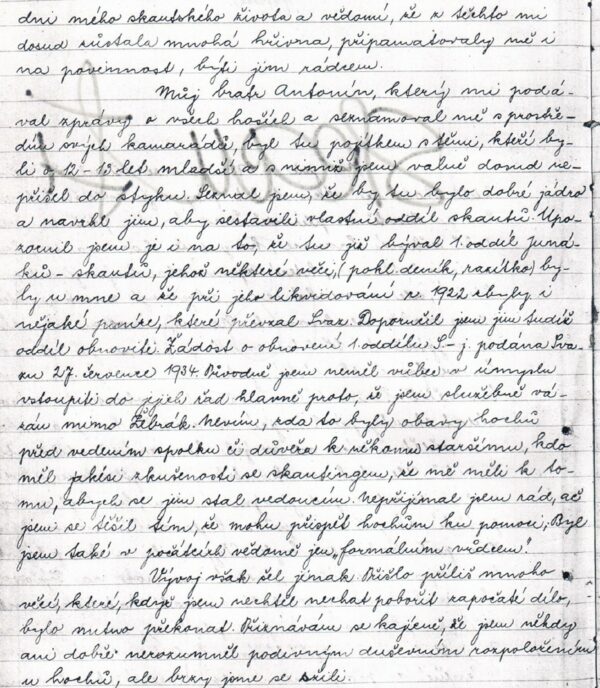 dni mého skautského života a vědomí, že z těchto mi
dosud zůstala mnohá hřivna, připamatovaly mě i
na povinnost, býti jim rádcem.
Můj bratr Antonín, který mi podá-
val zprávy o všech hoších a seznamoval mě s prostře-
dím svých kamarádů, byl tu pojítkem s těmi, kteří by-
li o 12-13 let mladší a s nimiž jsem valně dosud ne-
přišel do styku. Seznal jsem, že by tu bylo dobré jádro
a navrhl jim, aby sestavili vlastní oddíl skautů. Upo-
zornil jsem je i na to, že tu již býval 1. oddíl juná-
ků - skautů, jehož některé věci, (pokl. deník, razítko) by-
ly u mne a že při jeho likvidování r. 1922 zbyly i
nějaké peníze, které převzal Svaz. Doporučil jsem jim tudíž
oddíl obnoviti. Žádost o obnovení 1. oddílu S.-j. podána Sva-
zu 27. července 1934. Původně jsem neměl vůbec v úmyslu
vstoupiti do jejich řad hlavně proto, že jsem služebně vá-
zán mimo Žebrák. Nevím, zda to byly obavy hochů
před vedením spolku či důvěra k někomu staršímu, kdo
měl jakési zkušenosti se skautingem, že mě měli k to-
mu, abych se jim stal vedoucím. Nepřijímal jsem rád, ač
jsem se těšil tím, že mohu přispět hochům ku pomoci, Byl
jsem také v počátcích vědomě jen „formálním vůdcem".
Vývoj však šel jinak. Přišlo příliš mnoho
věcí, které, když jsem nechtěl nechat pobořit započaté dílo,
bylo nutno překonat. Přiznávám se kajícně, že jsem někdy
ani dobře nerozuměl podivným duševním rozpoložením
u hochů, ale brzy jsme se sžili.